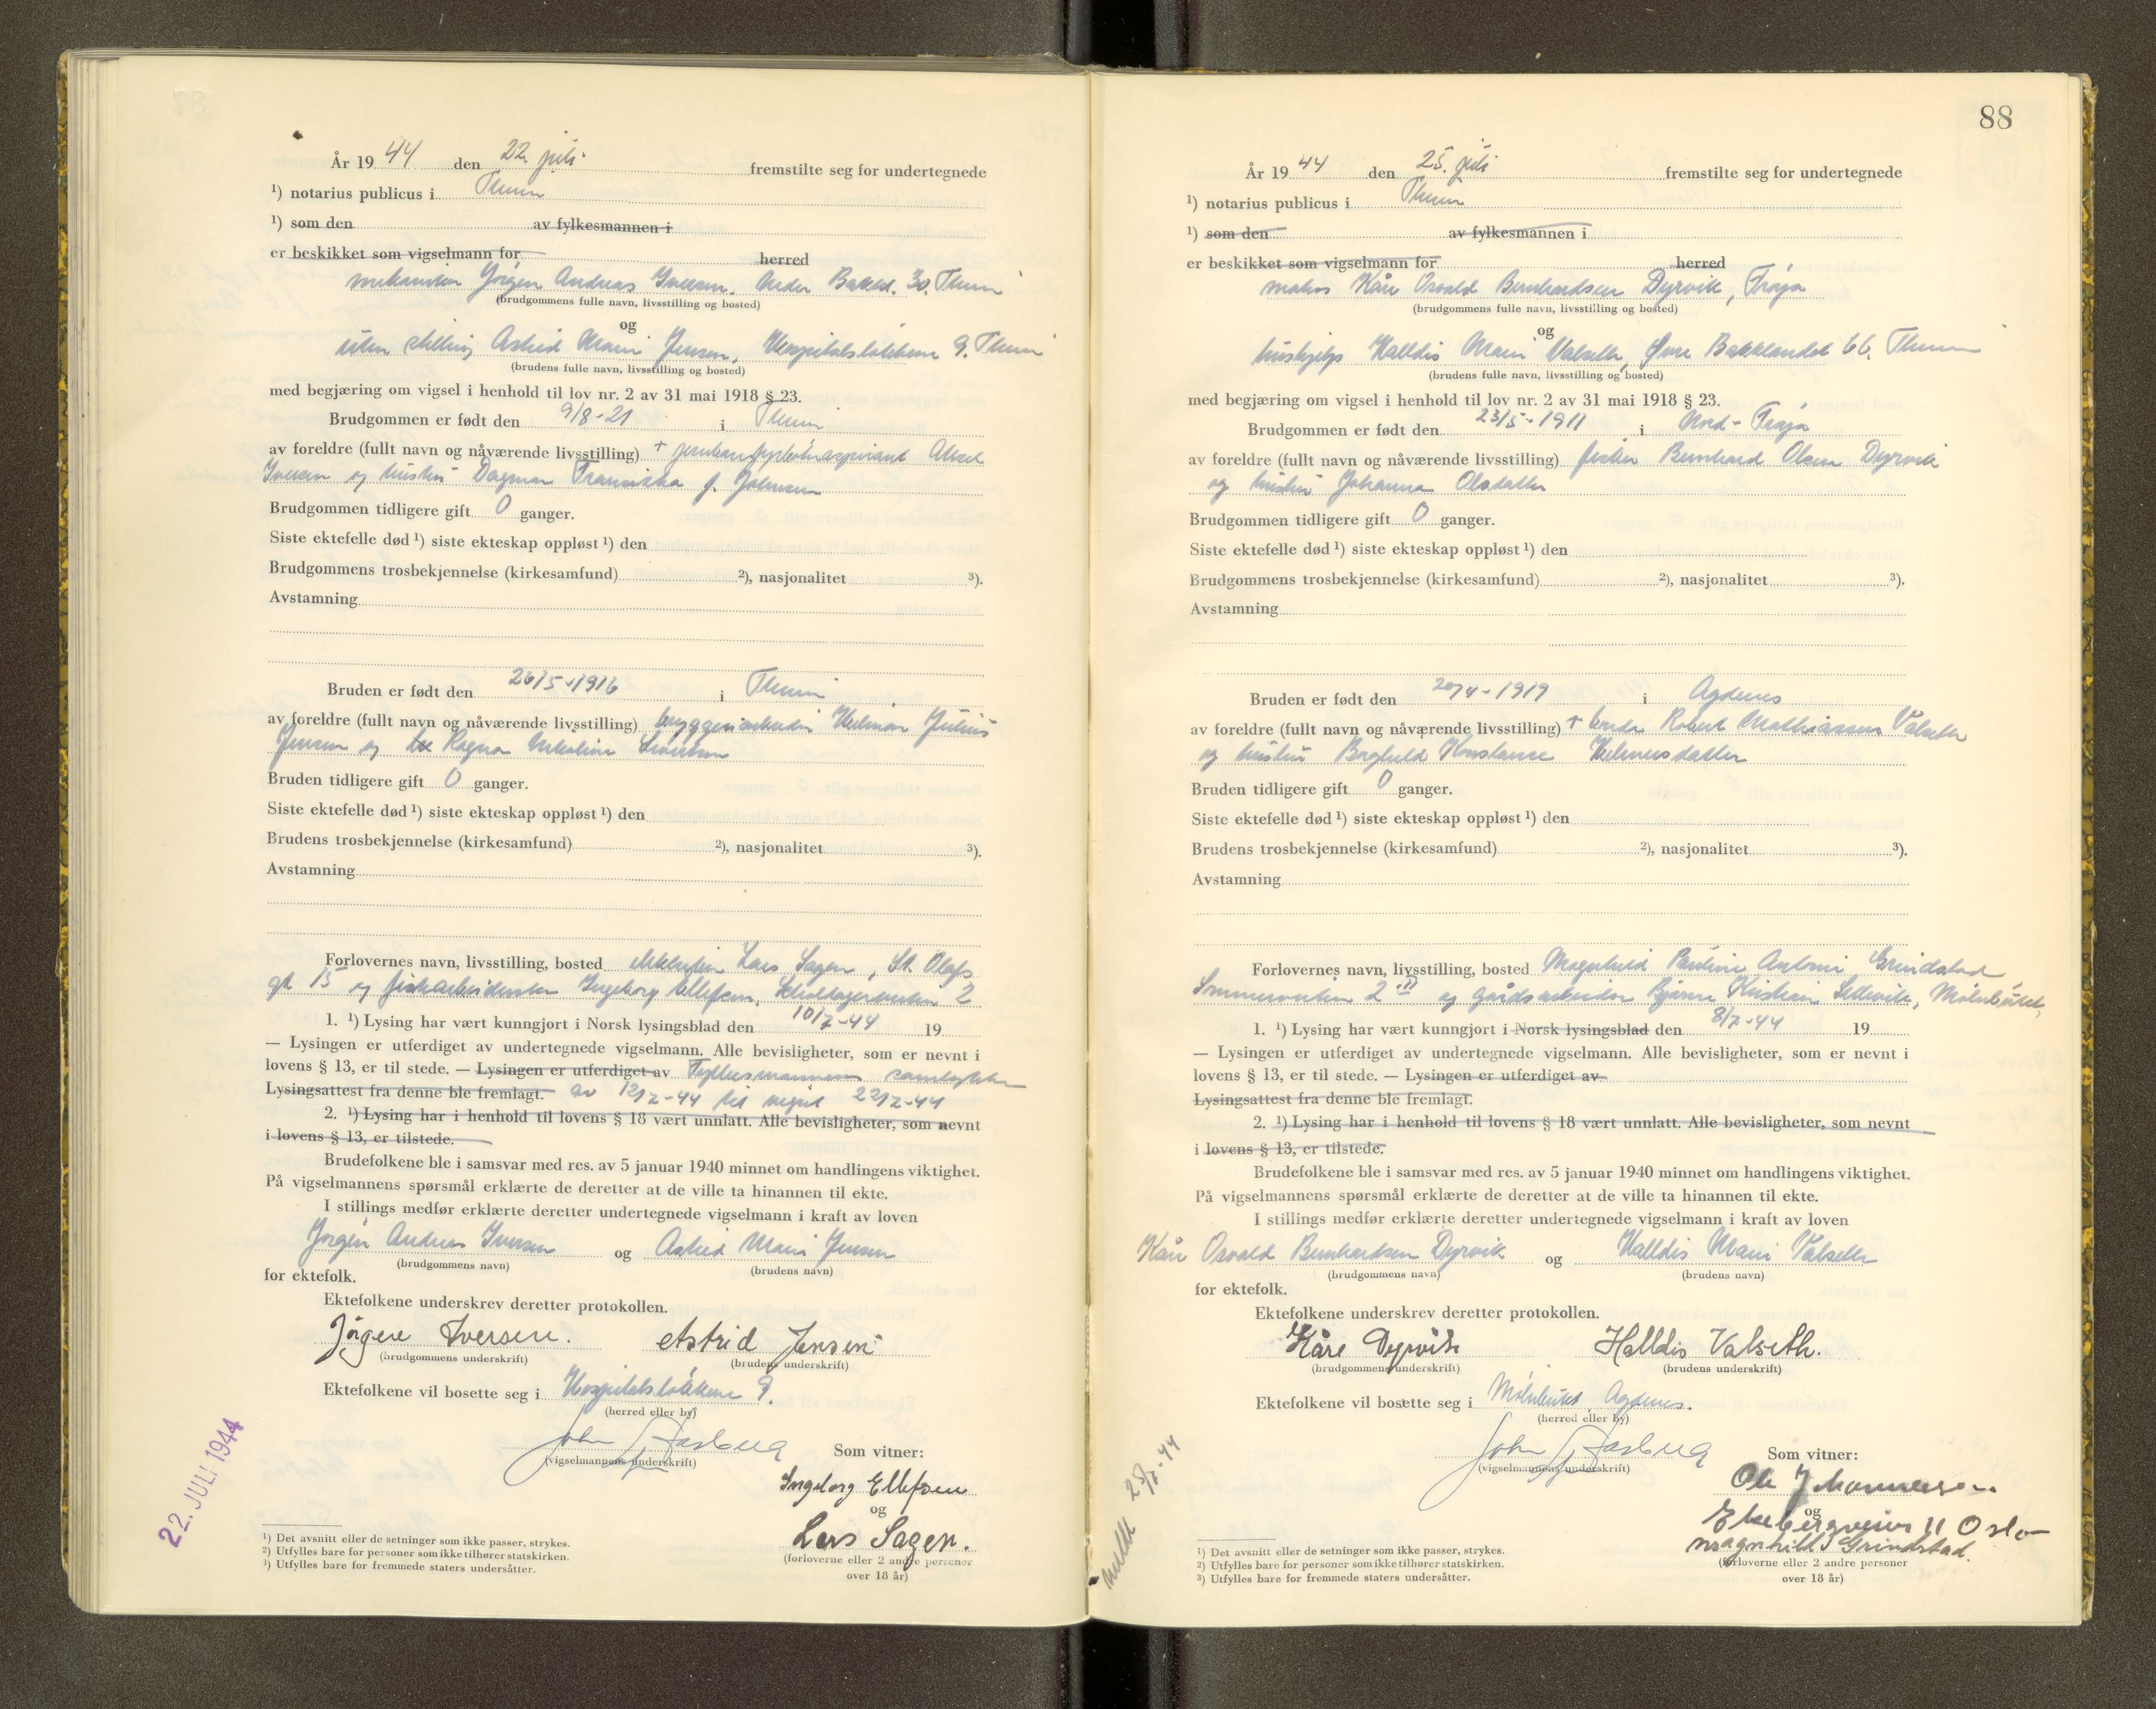 År 19 44 den 22. juli fremstilte seg for undertegnede
¹) notarius publicus i Thm
¹) som den av fylkesmannen i
er beskikket som vigselmann for herred
mekaniker Jörgen Andreas Iversen. Bakkl. 30. Thm
(brudgommens fulle navn, livsstilling og bosted)
og
uten stilling Astrid Marie Jensen, Hospitalsløkkene 9. Thm
(brudens fulle navn, livsstilling og bosted)
med begjæring om vigsel i henhold til lov nr. 2 av 31 mai 1918 § 23.
Brudgommen er født den 9/8-21 i Thm
av foreldre (fullt navn og nåværende livsstilling) +
Iversen og hustru Dagmar Franciska f. Johnsen
Brudgommen tidligere gift 0 ganger.
Siste ektefelle død ¹) siste ekteskap oppløst ¹) den
Brudgommens trosbekjennelse (kirkesamfund) ²), nasjonalitet ³).
Avstamning
Bruden er født den 26/5-1916 i Thm
av foreldre (fullt navn og nåværende livsstilling) bryggeriarbeider Helmar Julius
Jensen og Ragna Nikoline
Bruden tidligere gift 0 ganger.
Siste ektefelle død ¹) siste ekteskap oppløst ¹) den
Brudens trosbekjennelse (kirkesamfund) ²), nasjonalitet ³).
Avstamning
Forlovernes navn, livsstilling, bosted Lars Sagen, St. Olafs
gt 15 og fiskearbeiderske Ingeborg Ellefsen, 2
1. ¹) Lysing har vært kunngjort i Norsk lysingsblad den 10/7-44 19
— Lysingen er utferdiget av undertegnede vigselmann. Alle bevisligheter, som er nevnt i
lovens § 13, er til stede. — Lysingen er utferdiget av Fylkesmannens samtykke
Lysingsattest fra denne ble fremlagt. av 12/7-44 til vigsel 22/7-44
2. ¹) Lysing har i henhold til lovens § 18 vært unnlatt. Alle bevisligheter, som nevnt
i lovens § 13, er tilstede.
Brudefolkene ble i samsvar med res. av 5 januar 1940 minnet om handlingens viktighet.
På vigselmannens spørsmål erklærte de deretter at de ville ta hinannen til ekte.
I stillings medfør erklærte deretter undertegnede vigselmann i kraft av loven
Jørgen Andreas Iversen og Astrid Marie Jensen
(brudgommens navn) (brudens navn)
for ektefolk.
Ektefolkene underskrev deretter protokollen.
Jörgen Iversen. Astrid Jensen
(brudgommens underskrift) (brudens underskrift)
Ektefolkene vil bosette seg i Hospitalsløkkene 9.
(herred eller by)
John Aasberg
(vigselmannens underskrift)
Som vitner:
Ingeborg Ellefsen
og
Lars Sagen.
(forloverne eller 2 andre personer
over 18 år)
22. JULI 1944
¹) Det avsnitt eller de setninger som ikke passer, strykes.
²) Utfylles bare for personer som ikke tilhører statskirken.
³) Utfylles bare for fremmede staters undersåtter.
88
År 19 44 den 25. juli fremstilte seg for undertegnede
¹) notarius publicus i Thm
¹) som den av fylkesmannen i
er beskikket som vigselmann for herred
matros Kåre Osvald Bernhardsen Dyrvik, Frøya
(brudgommens fulle navn, livsstilling og bosted)
og
hushjelp Halldis Marie Valseth, Øvre Bakklandet 66. Thm
(brudens fulle navn, livsstilling og bosted)
med begjæring om vigsel i henhold til lov nr. 2 av 31 mai 1918 § 23.
Brudgommen er født den 23/5-1911 i Nord-Frøya
av foreldre (fullt navn og nåværende livsstilling) fisker Bernhard Olsen Dyrvik
og hustru Johanna Olsdatter
Brudgommen tidligere gift 0 ganger.
Siste ektefelle død ¹) siste ekteskap oppløst ¹) den
Brudgommens trosbekjennelse (kirkesamfund) ²), nasjonalitet ³).
Avstamning
Bruden er født den 20/4-1919 i Agdenes
av foreldre (fullt navn og nåværende livsstilling) + bonde Robert Mathiassen Valseth
og hustru Borghild Konstanse Helmersdatter
Bruden tidligere gift 0 ganger.
Siste ektefelle død ¹) siste ekteskap oppløst ¹) den
Brudens trosbekjennelse (kirkesamfund) ²), nasjonalitet ³).
Avstamning
Forlovernes navn, livsstilling, bosted Magnhild Pauline Antoni Grindstad
2 II og gårdsarbeider Bjarne Kristian Selbekk, Mølnbukt,
1. ¹) Lysing har vært kunngjort i Norsk lysingsblad den 8/7-44 19
— Lysingen er utferdiget av undertegnede vigselmann. Alle bevisligheter, som er nevnt i
lovens § 13, er til stede. — Lysingen er utferdiget av
Lysingsattest fra denne ble fremlagt.
2. ¹) Lysing har i henhold til lovens § 18 vært unnlatt. Alle bevisligheter, som nevnt
i lovens § 13, er tilstede.
Brudefolkene ble i samsvar med res. av 5 januar 1940 minnet om handlingens viktighet.
På vigselmannens spørsmål erklærte de deretter at de ville ta hinannen til ekte.
I stillings medfør erklærte deretter undertegnede vigselmann i kraft av loven
Kåre Osvald Bernhardsen Dyrvik og Halldis Marie Valseth
(brudgommens navn) (brudens navn)
for ektefolk.
Ektefolkene underskrev deretter protokollen.
Kåre Dyrvik Halldis Valseth.
(brudgommens underskrift) (brudens underskrift)
Ektefolkene vil bosette seg i Mølnbukt, Agdenes.
(herred eller by)
John Aasberg
(vigselmannens underskrift)
Som vitner:
Ole J Johannessen
og
Ekebergveien 11 Oslo
Magnhild Grindstad.
(forloverne eller 2 andre personer
over 18 år)
meldt 25/7-44
¹) Det avsnitt eller de setninger som ikke passer, strykes.
²) Utfylles bare for personer som ikke tilhører statskirken.
³) Utfylles bare for fremmede staters undersåtter.